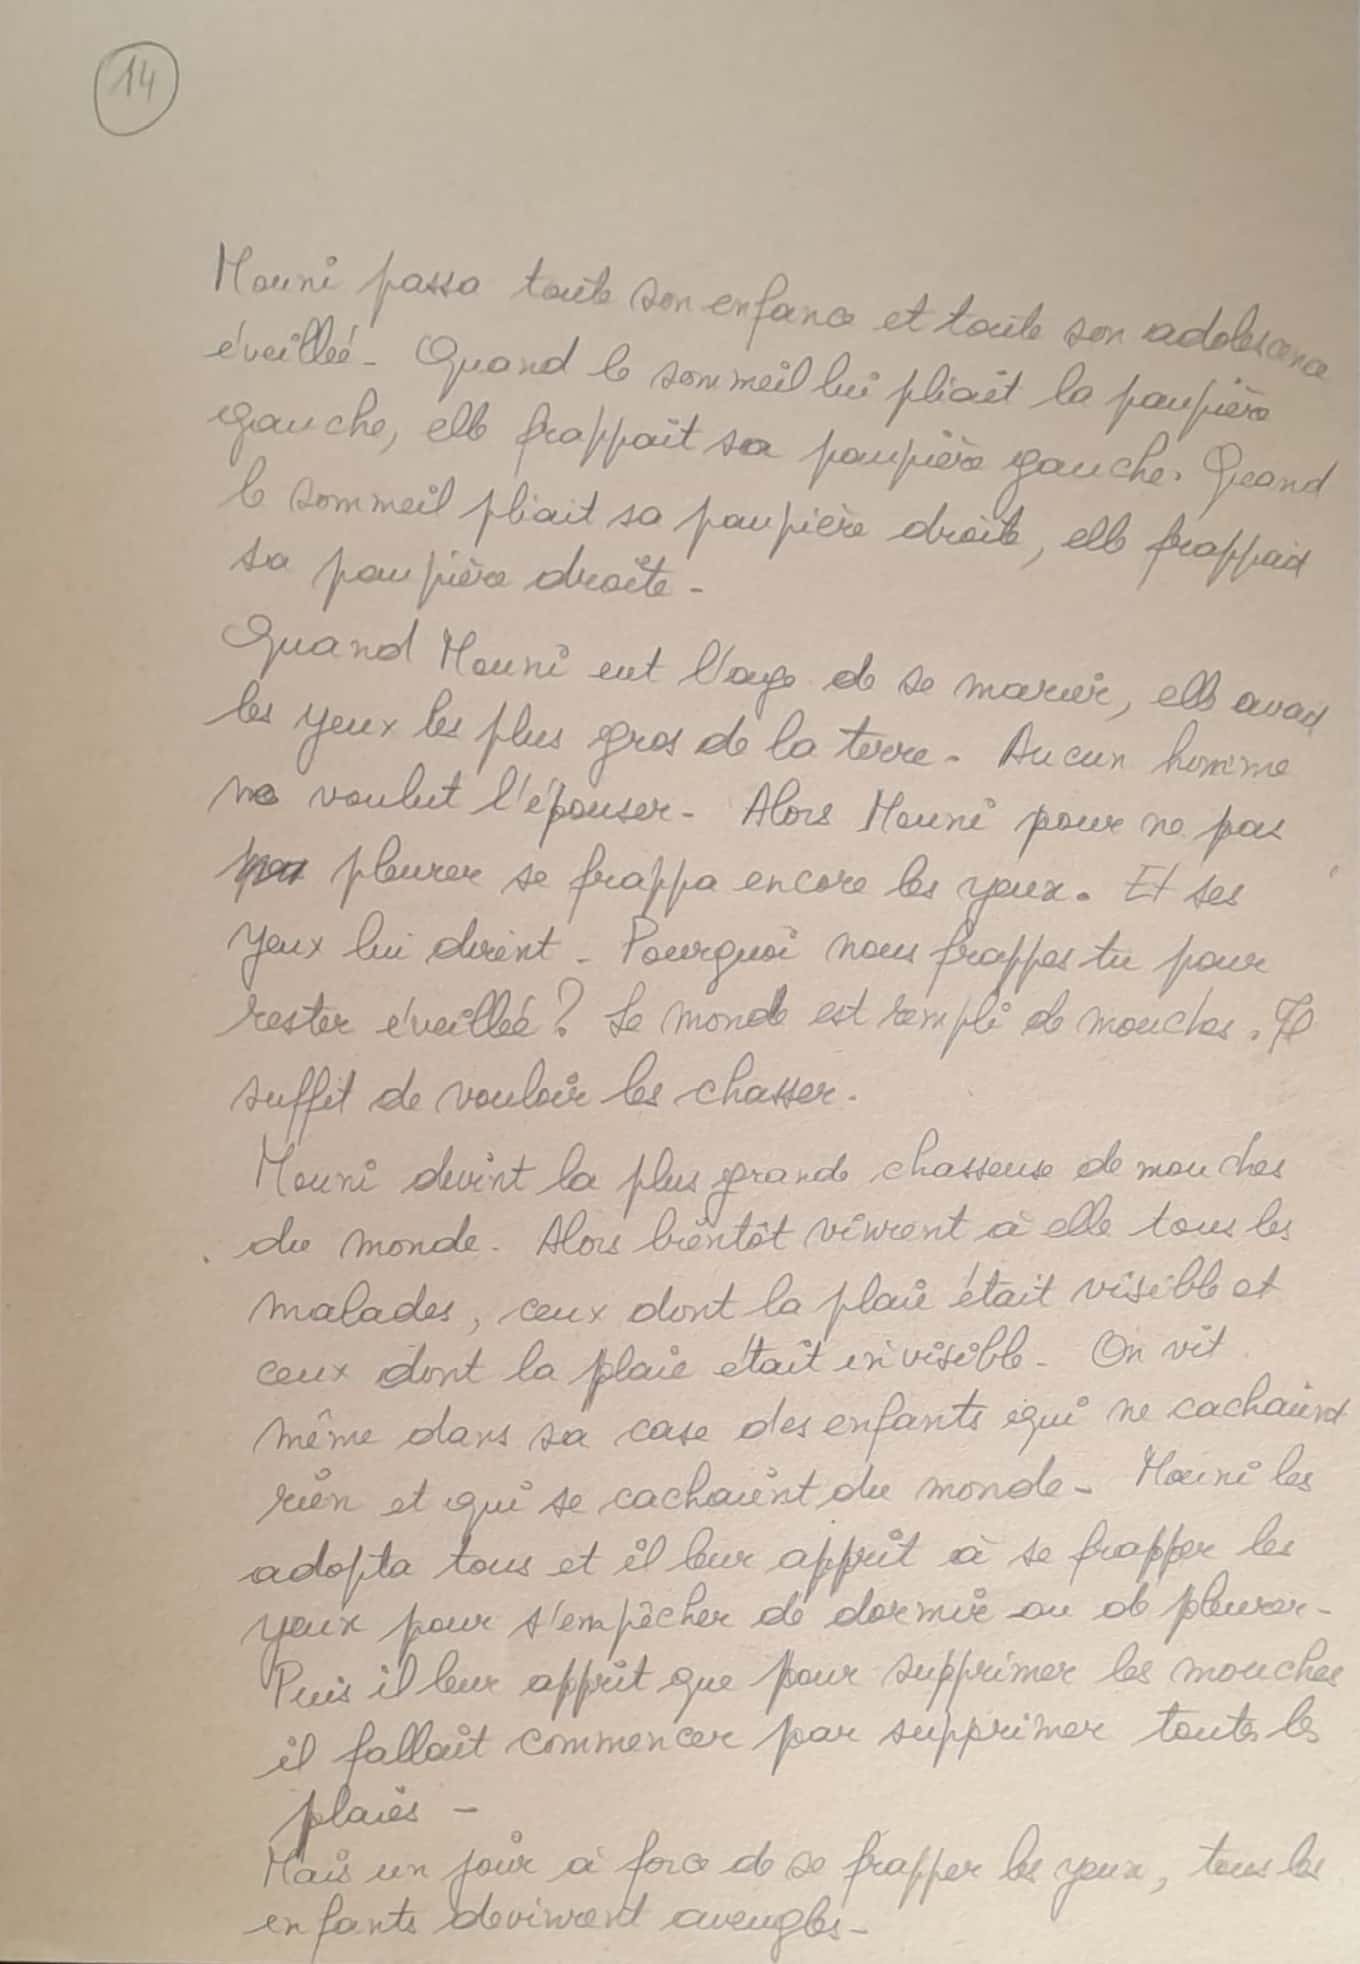 14
Mouni passa toute son enfance et toute son adolescence
éveillée - Quand le sommeil lui pliait la paupière
gauche, elle frappait sa paupière gauche. Quand
le sommeil pliait sa paupière droite, elle frappait
sa paupière droite -
Quand Mouni eut l'age de se marier, elle avait
les yeux les plus gros de la terre - Aucun homme
ne voulut l'épouser - Alors Mouni pour ne pas
pleurer se frappa encore les yeux. Et ses
yeux lui dirent - Pourquoi nous frappes tu pour
rester éveillée ? Le monde est rempli de mouches. Il
suffit de vouloir les chasser.
Mouni devint la plus grande chasseuse de mouches
du monde. Alors bientôt vinrent à elle tous les
malades, ceux dont la plaie était visible et
ceux dont la plaie était invisible - On vit
même dans sa case des enfants qui ne cachaient
rien et qui se cachaient du monde - Mouni les
adopta tous et il leur apprit à se frapper les
yeux pour s'empêcher de dormir ou de pleurer -
Puis il leur apprit que pour supprimer les mouches
il fallait commencer par supprimer toutes les
plaies -
Mais un jour à force de se frapper les yeux, tous les
enfants devinrent aveugles -